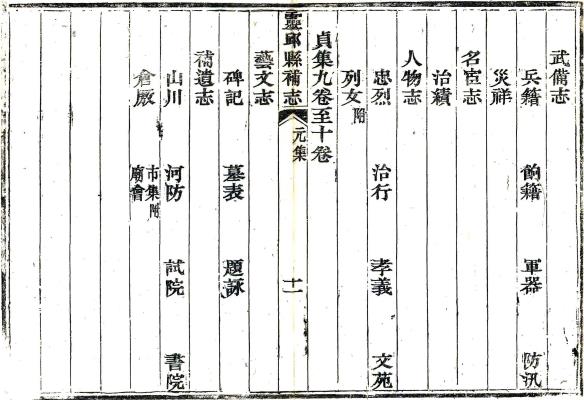 武備志
兵籍 餉籍 軍器 防汛
災祥
名宦志
治績
人物志
忠烈 治行 孝義 文苑
列女附
貞集九卷至十卷
靈邱縣補志 元集 十一
藝文志
碑記 墓表 題詠
補遺志
山川 河防 試院 書院
倉厫 市集附
廟會